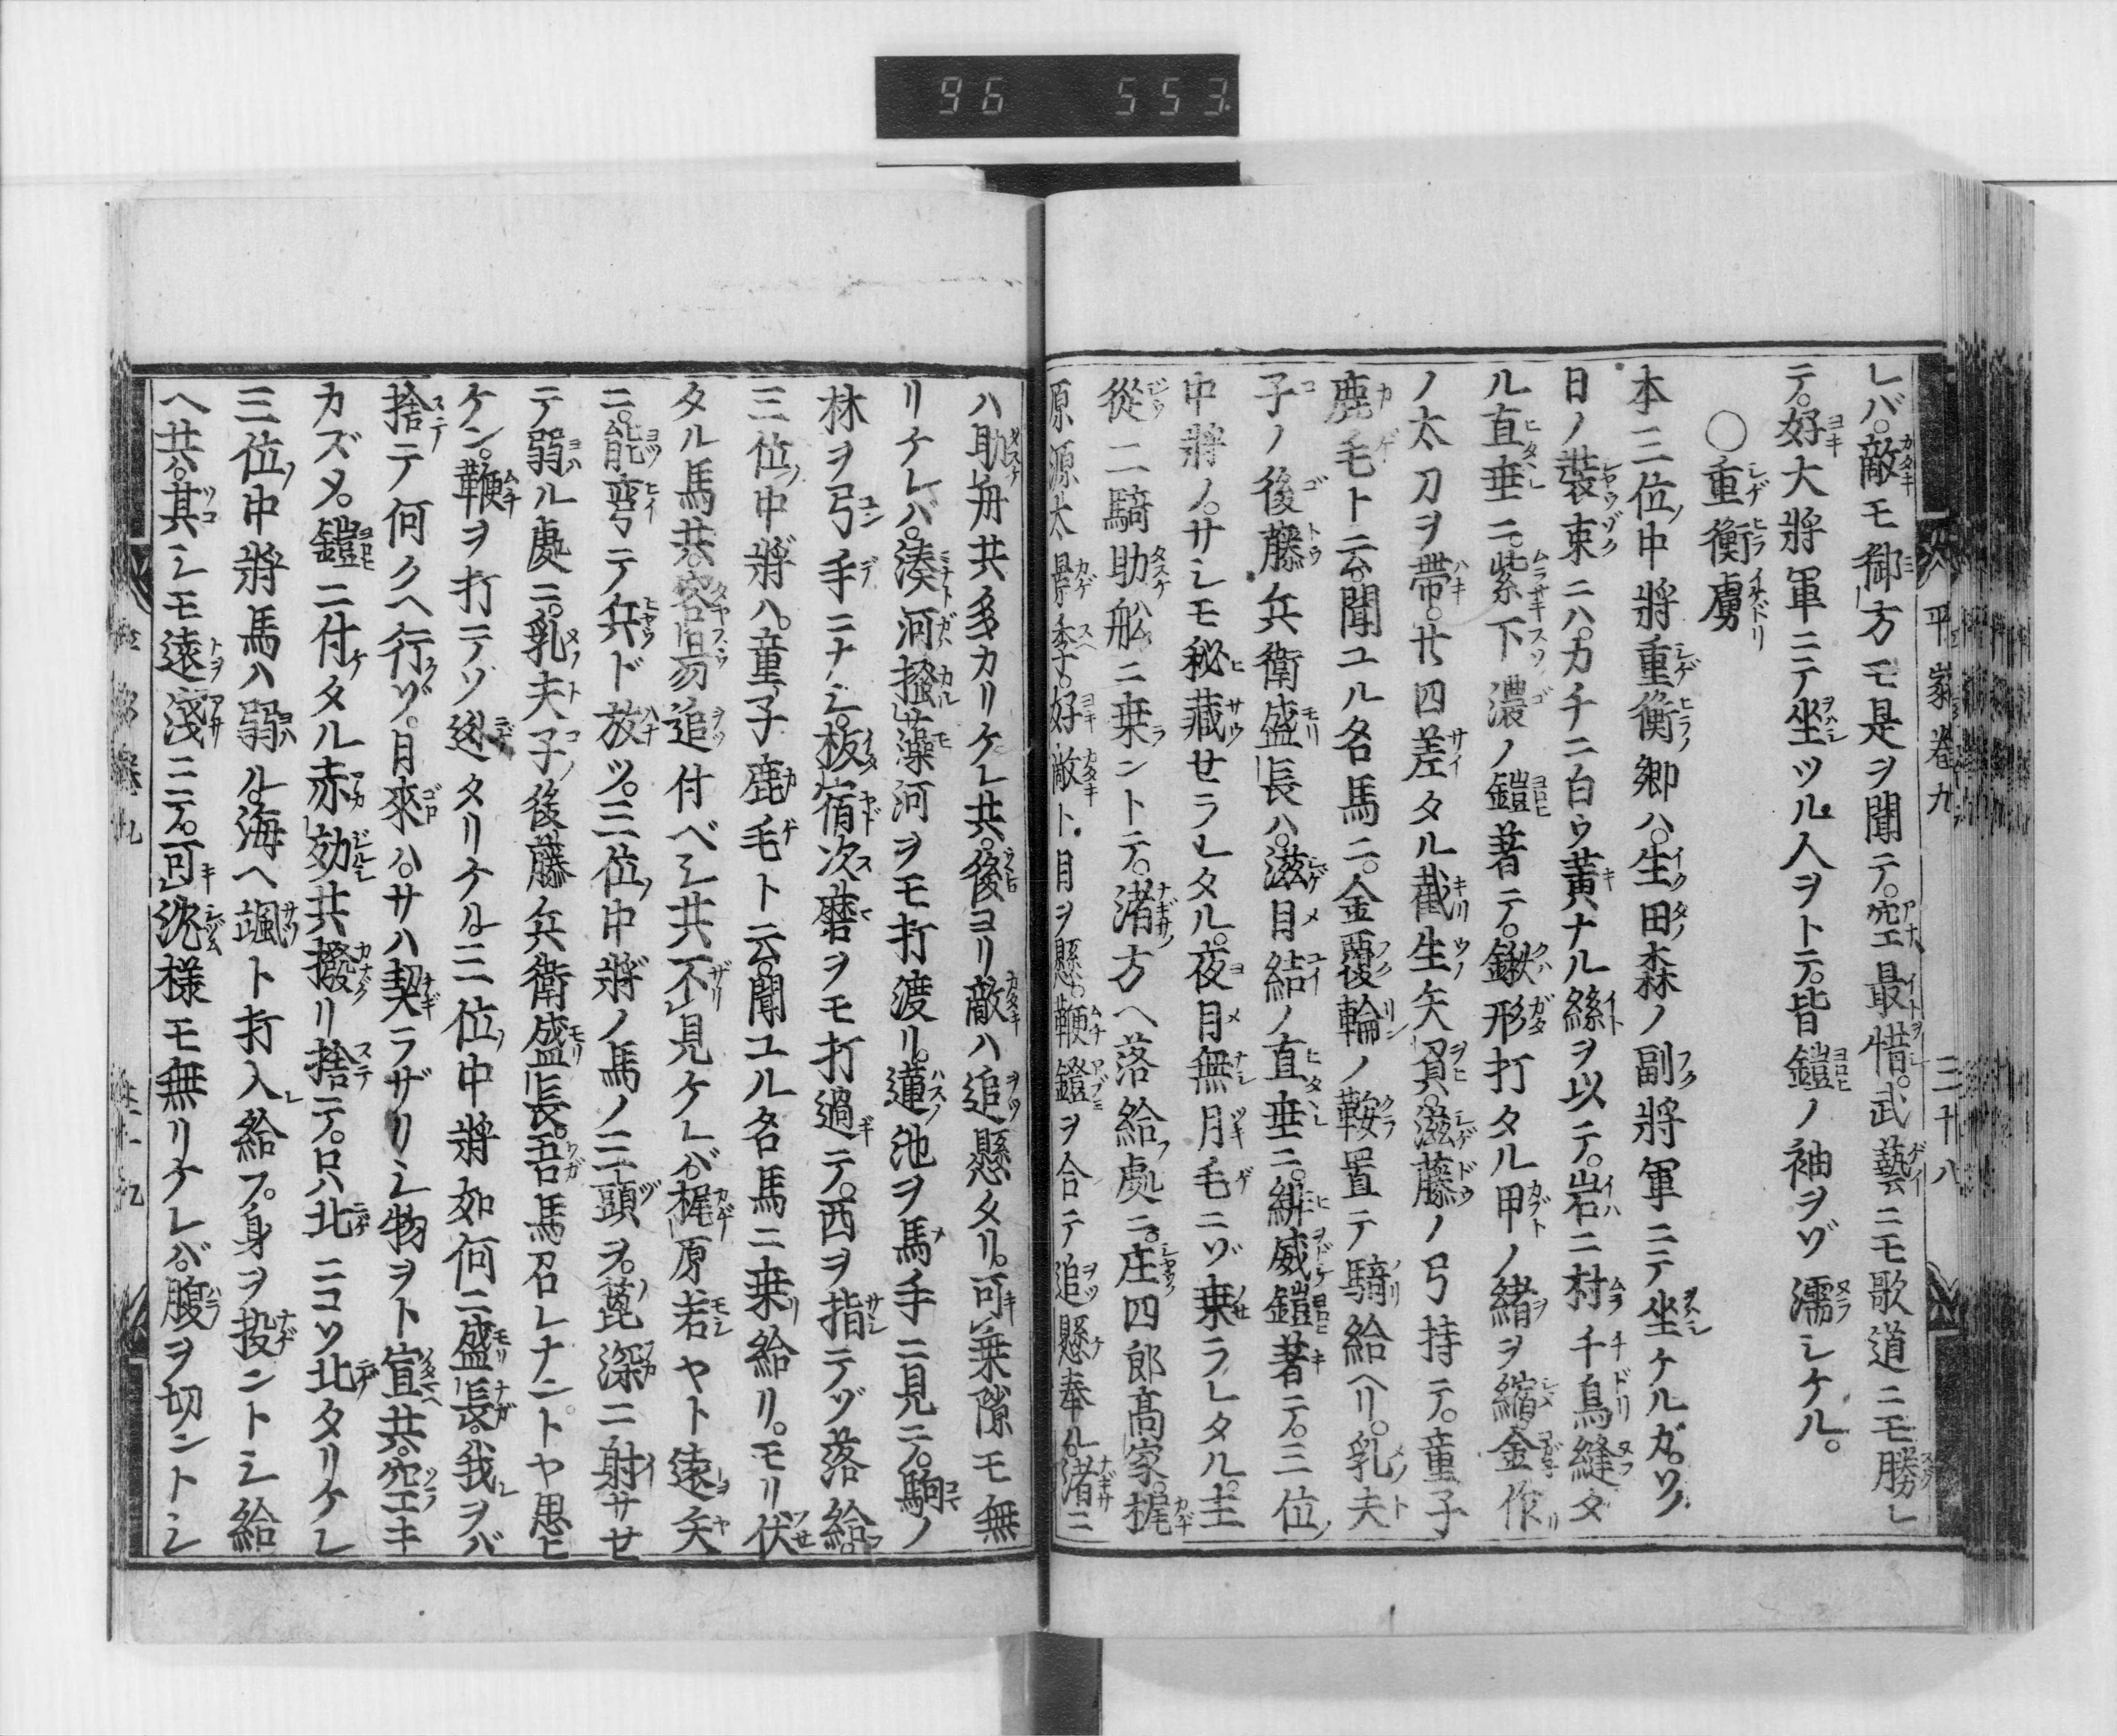 96 553
平家巻九 三十八
レバ。敵モ御方モ是ヲ聞テ。穴最惜。武藝ニモ歌道ニモ勝レ
テ。好大將軍ニテ坐ツル人ヲトテ。皆鎧ノ袖ヲゾ濡シケル。
○重衡虜
本三位中將重衡卿ハ。生田森ノ副將軍ニテ坐ケルガ。ソノ
日ノ裝束ニハ。カチニ白ウ黄ナル絲ヲ以テ。岩ニ村千鳥縫タ
ル直垂ニ。紫下濃ノ鎧著テ。鍬形打タル甲ノ緒ヲ縮。金作リ
ノ太刀ヲ帶。廿四差タル截生矢負。滋藤ノ弓持テ。童子
鹿毛ト云。聞ユル名馬ニ。金覆輪ノ鞍置テ騎給ヘリ。乳夫
子ノ後藤兵衛盛長ハ。滋目結ノ直垂ニ。緋威鎧著テ。三位
中將ノ。サシモ秘藏せラレタル。夜目無月毛ニゾ乗ラレタル。主
從二騎助舩ニ乗ントテ。渚方ヘ落給處ニ。庄四郎髙家。梶
原源太景季。好敵ト目ヲ懸。鞭鐙ヲ合テ追懸奉ル。渚ニ
ハ助舟共多カリケレ共。後ヨリ敵ハ追懸タリ。可乗隙モ無
リケレバ。湊河掻藻河ヲモ打渡リ。蓮池ヲ馬手ニ見テ。駒ノ
林ヲ弓手ニナシ。板宿次磨ヲモ打過テ。西ヲ指テゾ落給。
三位中將ハ。童子鹿毛ト云。聞ユル名馬ニ乗給リ。モリ伏
タル馬共。容易追付ベシ共不見ケレバ。梶原若ヤト遠矢
ニ。能彎テ兵ド放ツ。三位中將ノ馬ノ三頭ヲ。箆深ニ射サせ
テ弱ル處ニ。乳夫子後藤兵衛盛長。吾馬召レナントヤ思ヒ
ケン。鞭ヲ打テゾ迯タリケル。三位中將如何ニ盛長。我ヲバ
捨テ何クヘ行ゾ。月來ハ。サハ契ラザリシ物ヲト宣共。空キ
カズメ。鎧ニ付タル赤効共撥リ捨テ。只北ニコソ北タリケレ
三位中將馬ハ弱ル。海ヘ颯ト打入給フ。身ヲ投ントシ給
ヘ共。其シモ遠淺ニテ。可沈様モ無リケレバ。腹ヲ切ントシ